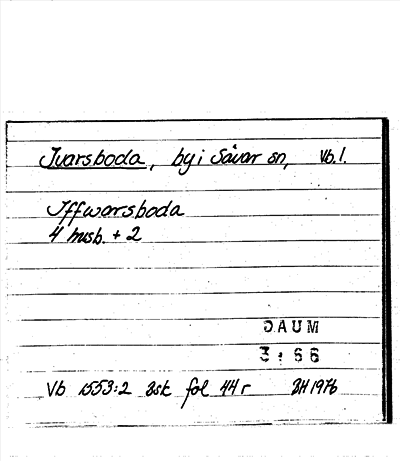 Ivarsboda, by i Sävar sn, Vb.l.
Iffwarsboda
4 husb. + 2
DAUM
3:66
Vb 1553:2 Bsk fol 44r BH 1976